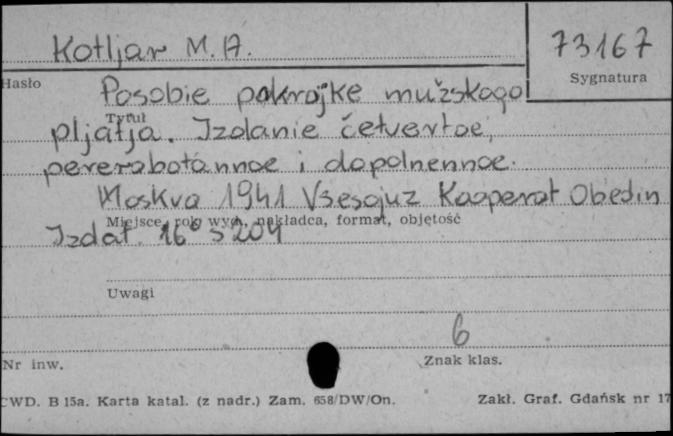 Kotljar M. A.
73167
Hasło
Sygnatura
Posobie pokrojke mužskogo
Tytuł
pljatja. Izdanie četvertoe,
pererabotannoe i dopolnennoe.
Moskva 1941 Vsesojuz Kooperat Obedin
Miejsce, rok wyd., nakładca, format, objętość
Izdat. 16° s 204
Uwagi
6
Nr inw.
Znak klas.
CWD. B 15a. Karta katal. (z nadr.) Zam. 658/DW/On.
Zakł. Graf. Gdańsk nr 17